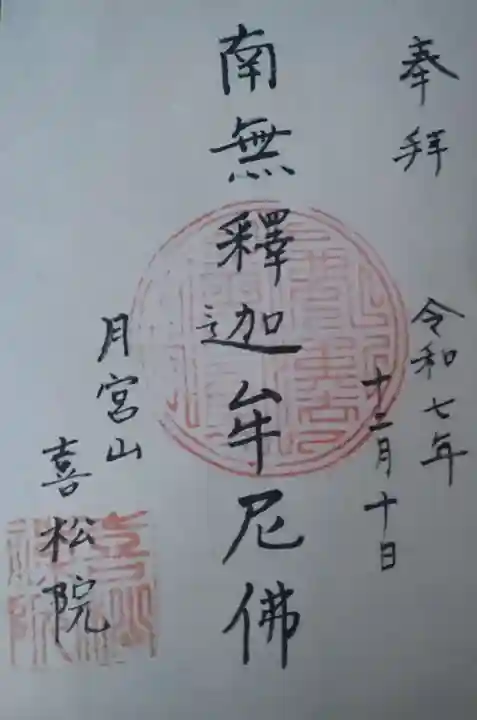 奉拜
令和七年
十二月十日
南無釋迦牟尼佛
月宮山
喜松院